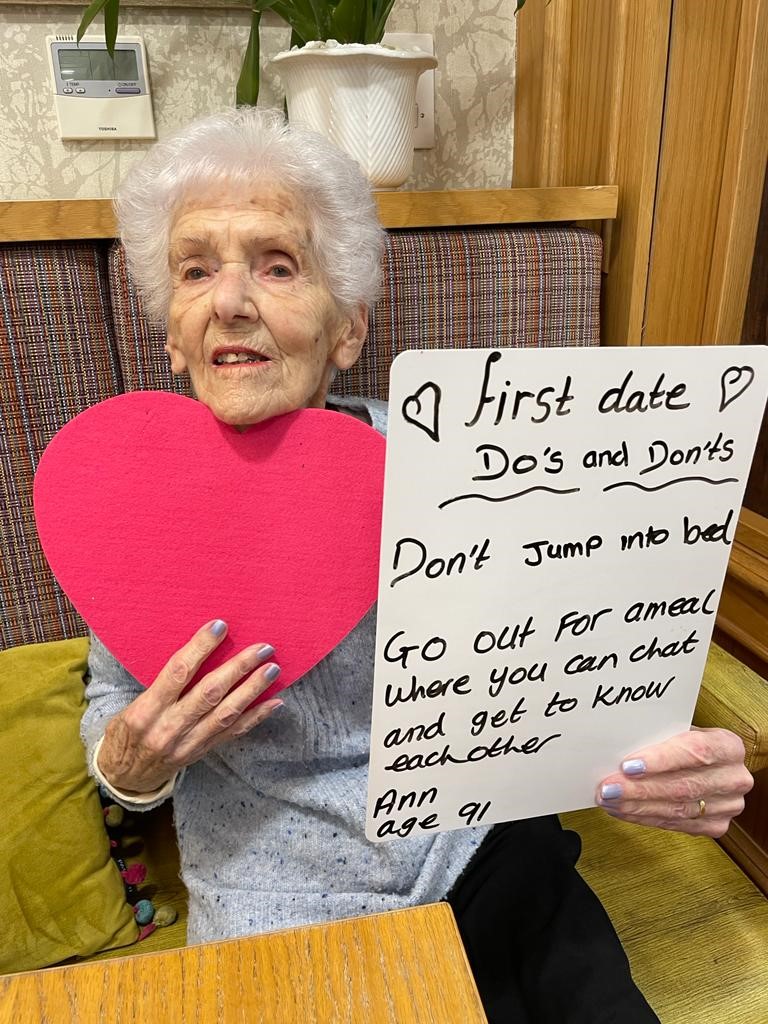 TEMP
ON/OFF
TOSHIBA
first date
Do's and Don'ts
Don't Jump into bed
Go out For a meal
where you can chat
and get to know
each other
Ann
age 91